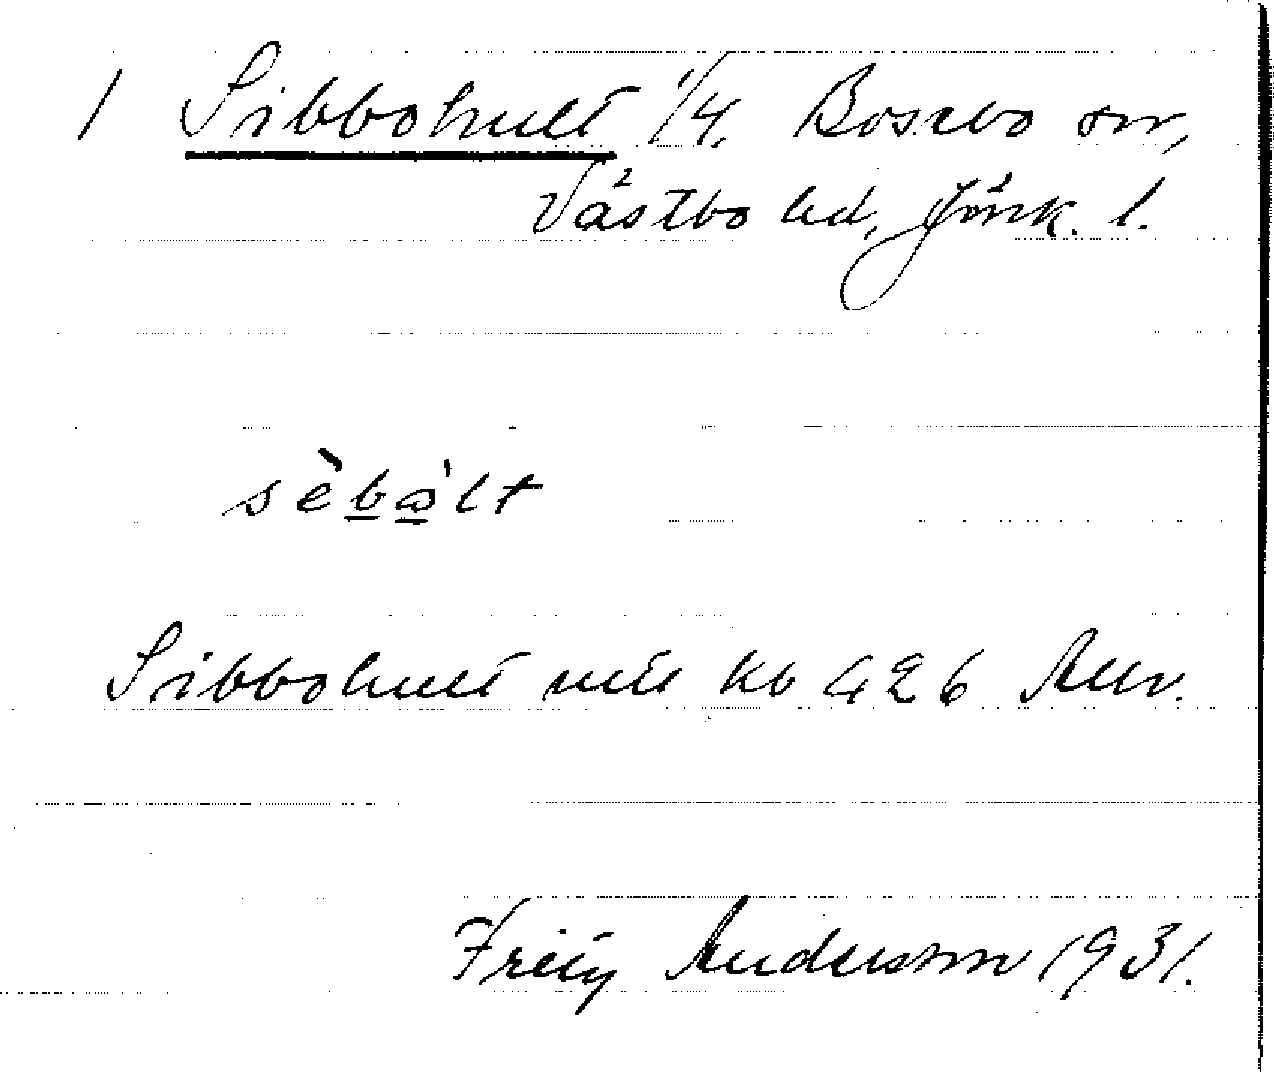 1 Sibbohult 1/4. Bosebo sn,
Västbo hd, Jönk. l.
sèbålt
Sibbohult utt kb 426 Allv.
Fritz Andersson 1931.